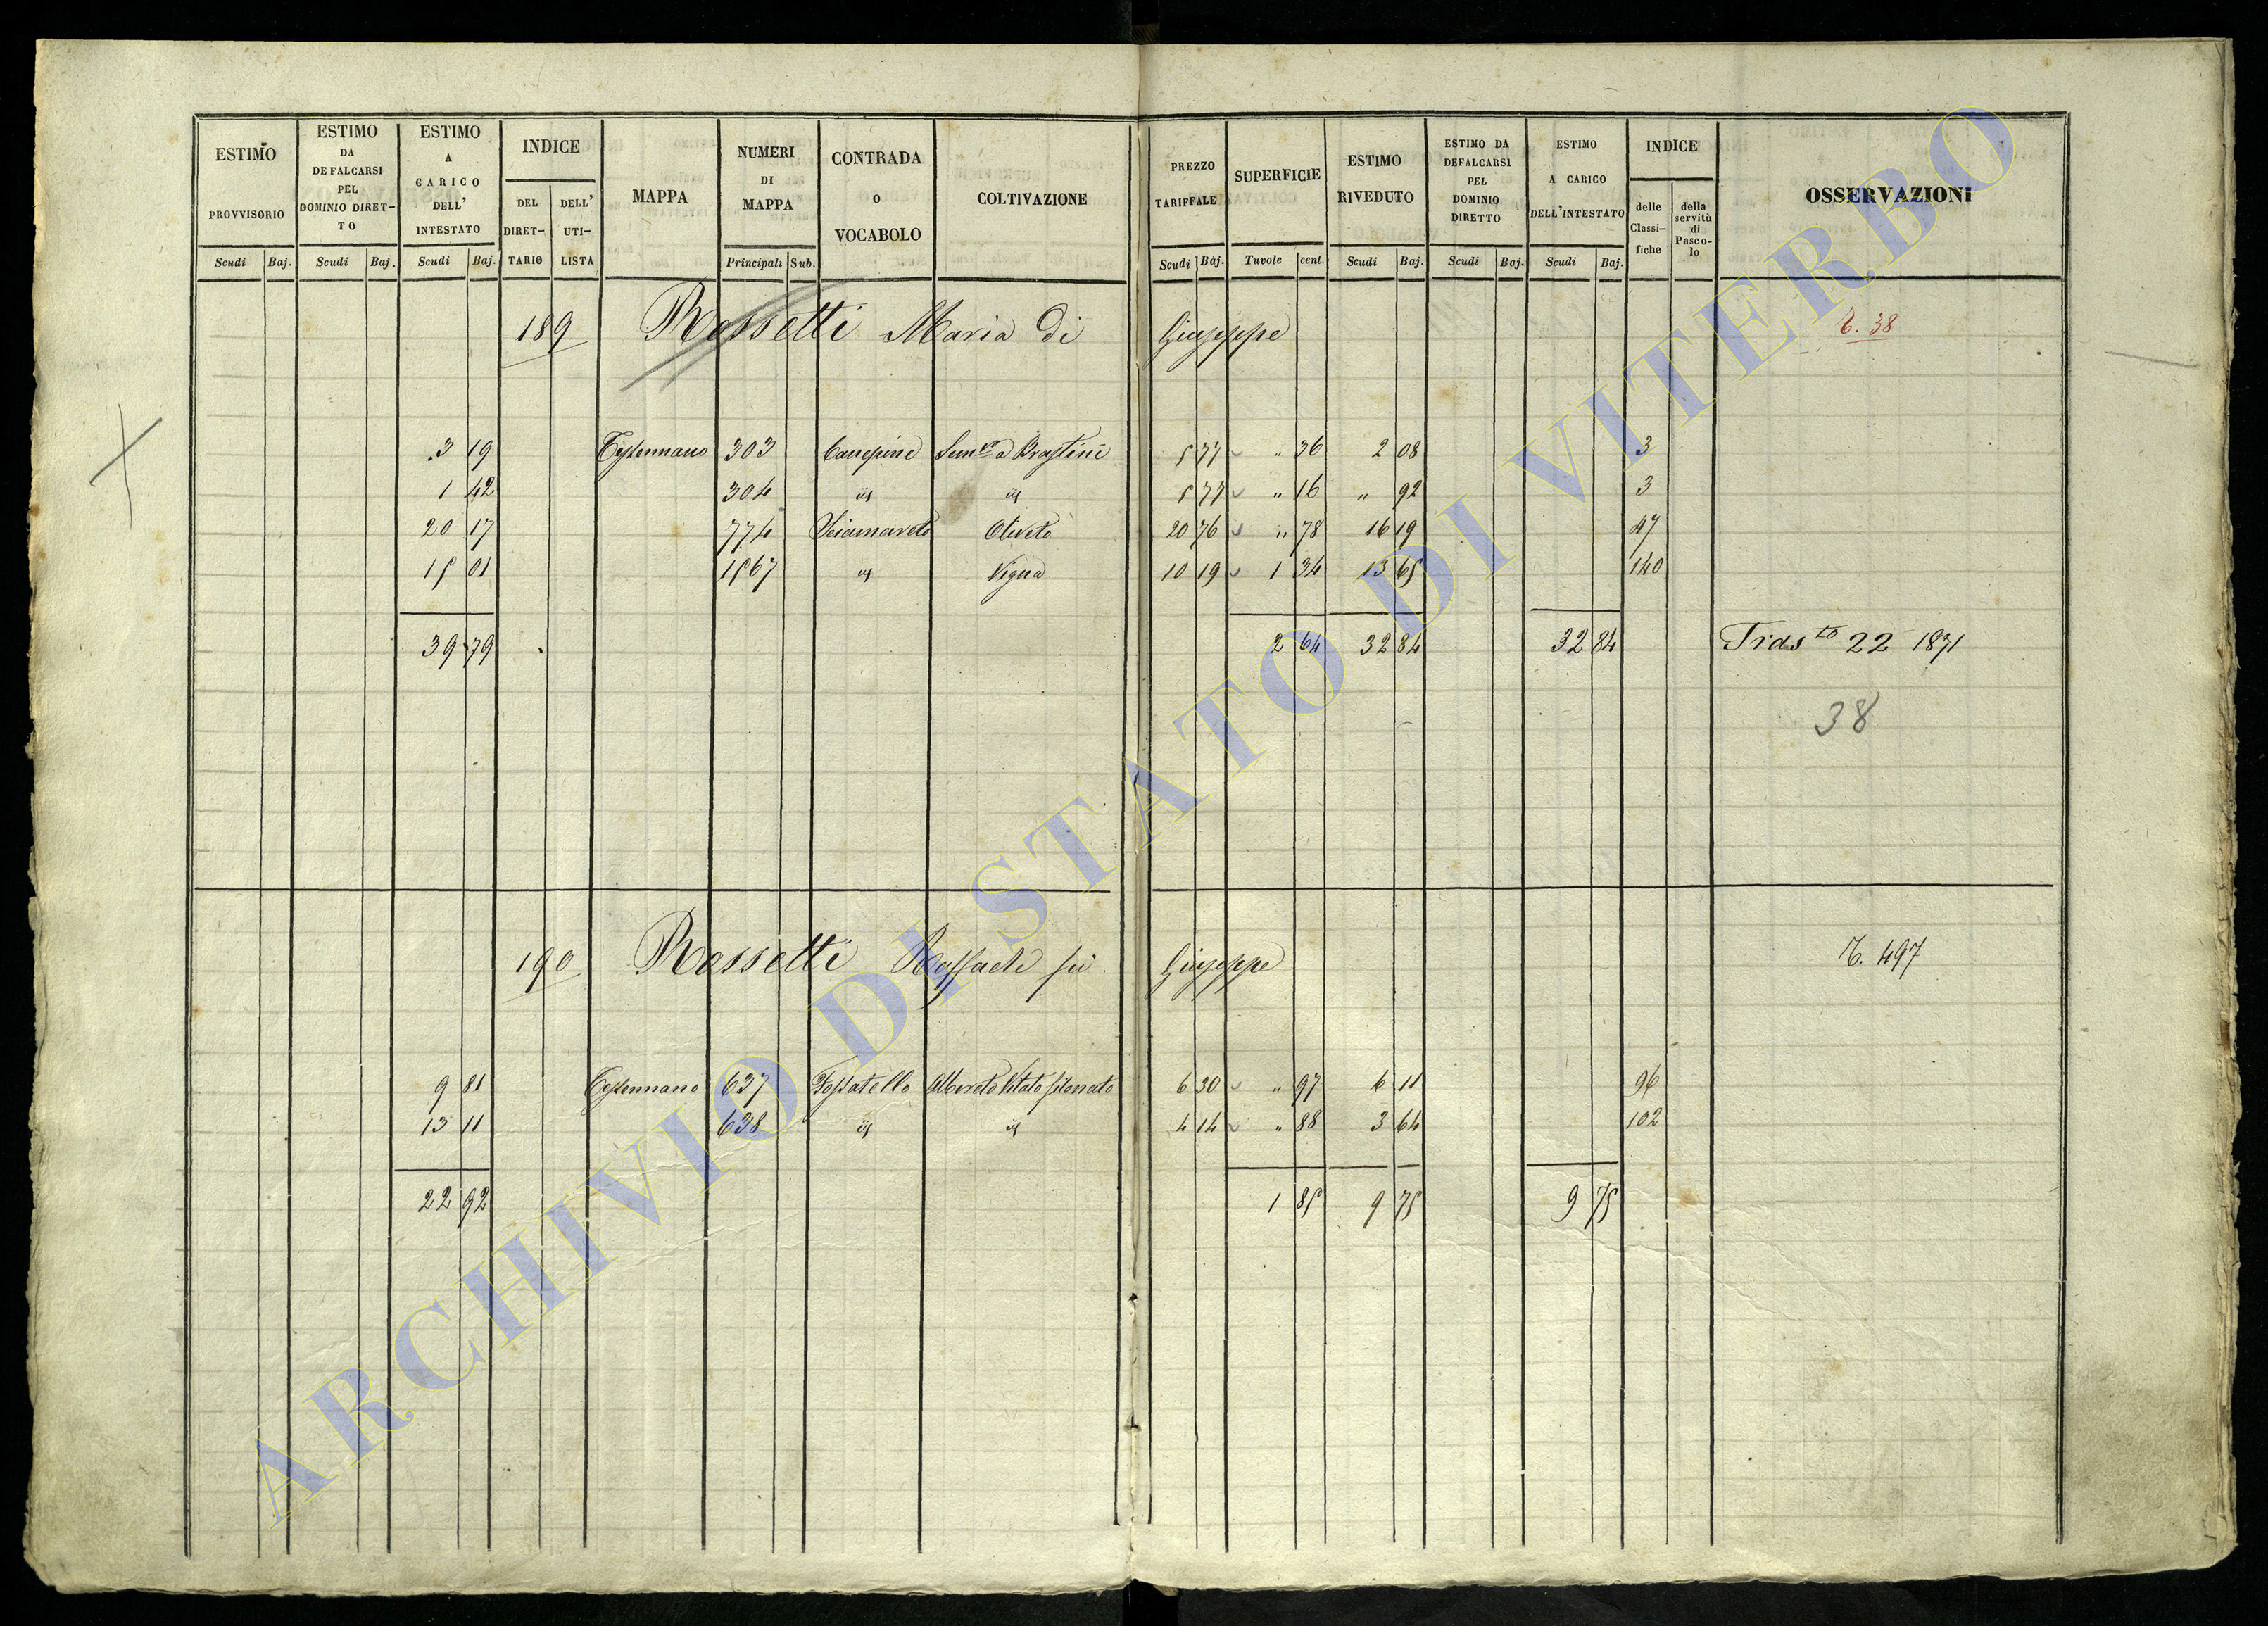 ESTIMO PROVVISORIO | ESTIMO DA DEFALCARSI PEL DOMINIO DIRET-TO | ESTIMO A CARICO DELL' INTESTATO | INDICE | MAPPA | NUMERI DI MAPPA | CONTRADA O VOCABOLO | COLTIVAZIONE | PREZZO TARIFFALE | SUPERFICIE | ESTIMO RIVEDUTO | ESTIMO DA DEFALCARSI PEL DOMINIO DIRETTO | ESTIMO A CARICO DELL'INTESTATO | INDICE | OSSERVAZIONI
DEL DIRET-TARIO | DELL' UTI-LISTA | delle Classi-fiche | della servitù di Pasco-lo
Scudi | Baj. | Scudi | Baj. | Scudi | Baj. | Principali | Sub. | Scudi | Baj. | Tavole | cent. | Scudi | Baj. | Scudi | Baj. | Scudi | Baj.
189 Rossetti Maria di Giuseppe 6. 38
3 19 303 Canepine 5 77 " 36 2 08 3
1 42 304 5 77 " 16 " 92 3
20 17 774 Oliveto 20 76 " 78 16 19 47
15 01 1567 Vigna 10 19 1 34 13 65 140
39 79 2 64 32 84 32 84 22 1871
38
190 Rossetti Raffaele fu Giuseppe 497
9 81 637 Fossatello Alberato Vitato 6 30 " 97 6 11 96
13 11 638 4 14 " 88 3 64 102
22 92 1 85 9 75 9 75
ARCHIVIO DI STATO DI VITERBO